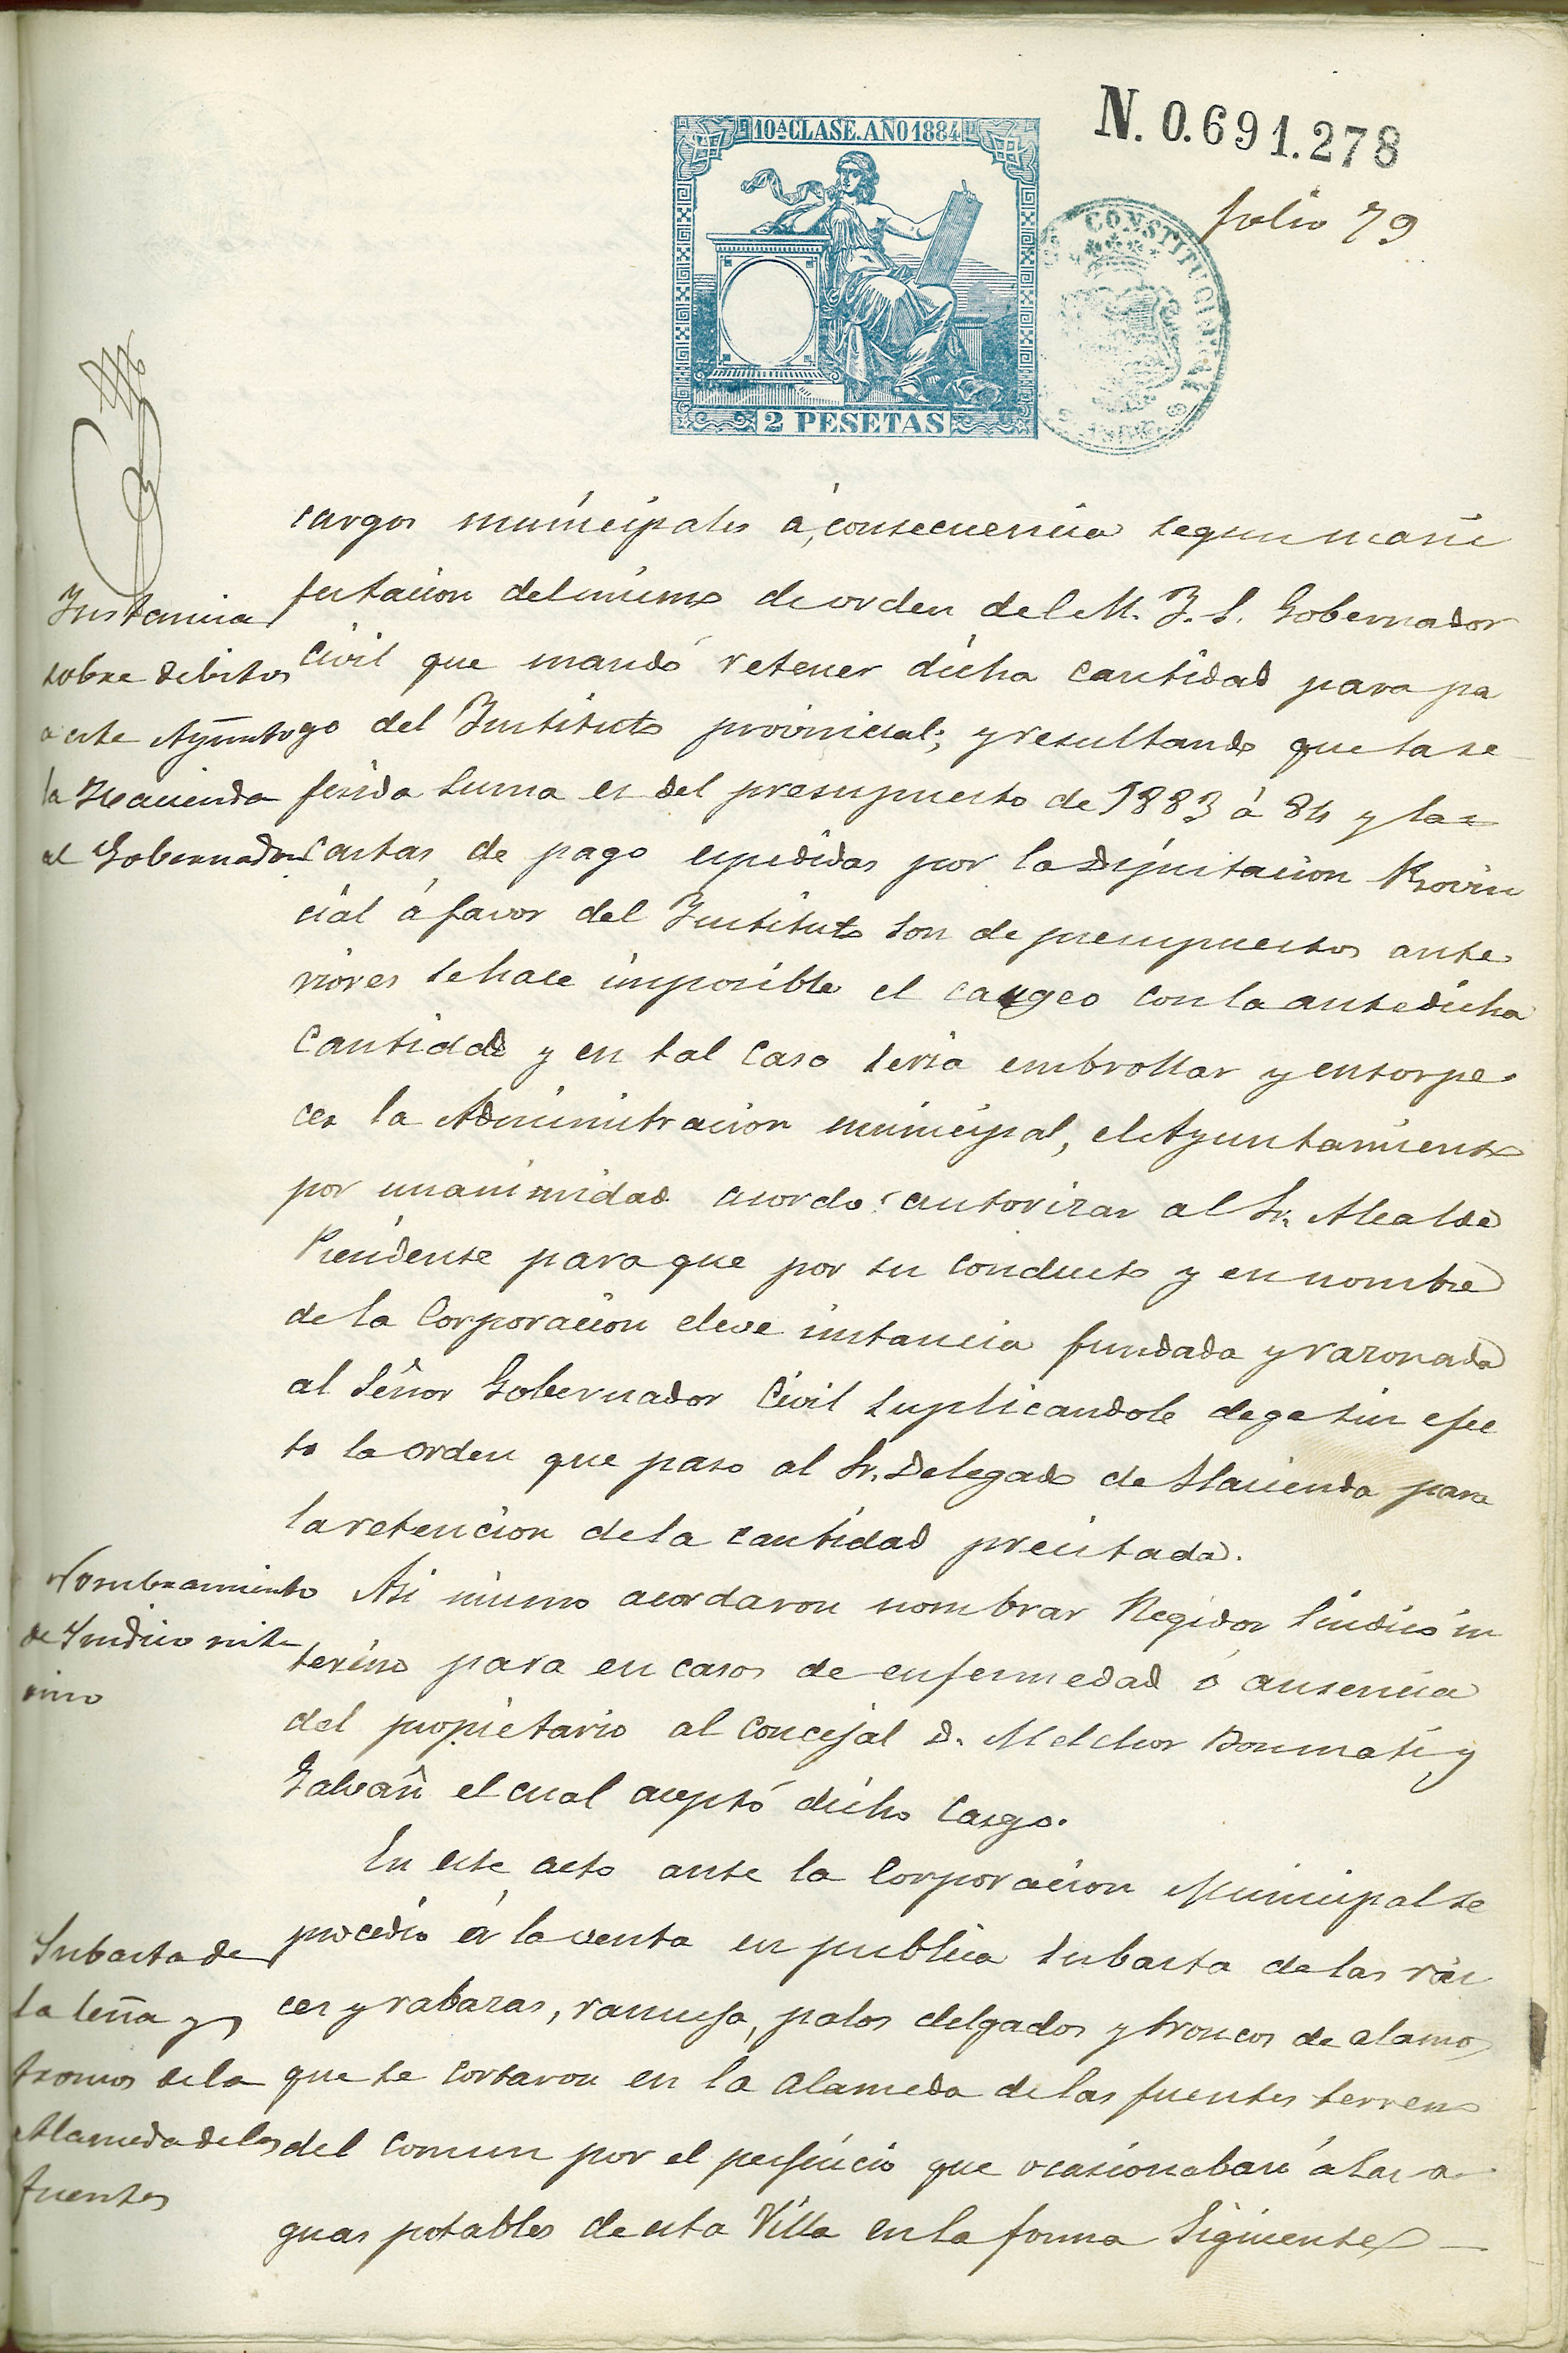 10ª CLASE. AÑO 1884
2 PESETAS
N. 0.691.278
CONSTITUCIONAL
folio 79
cargos municipales á consecuencia segun mani
festacion del mismo de orden del M. Y. S. Gobernador
Civil que mandó retener dicha cantidad para pa
go del Instituto provincial; y resultando que la re
ferida suma es del presupuesto de 1883 á 84 y las
cartas de pago espedidas por la Diputacion Provin
cial á favor del Instituto son de presupuestos ante
riores se hace imposible el cangeo con la antedicha
Cantidad y en tal caso seria embrollar y entorpe
cer la Administracion municipal, el Ayuntamiento
por unanimidad acordo: autorizar al Sr. Alcalde
Presidente para que por su conducto y en nombre
de la Corporacion eleve instancia fundada y razonada
al Señor Gobernador Civil suplicandole dege sin efec
to la orden que paso al Sr. Delegado de Hacienda para
la retencion de la cantidad precitada.
Asi mismo acordaron nombrar Regidor Sindico in
terino para en casos de enfermedad ó ausencia
del propietario al Concejal D. Melchor Bonmati y
Galvañ el cual aceptó dicho cargo.
En este acto ante la Corporacion Municipal se
procedio á la venta en publica subasta de las rai
ces y rabazas, ramuja, palos delgados y troncos de alamo,
que se cortaron en la alameda de las fuentes terreno
del Comun por el perjuicio que ocasionaban á las a
guas potables de esta Villa en la forma Siguiente
Instancia
sobre debitos
a este Ayunto
la Hacienda
al Gobernador
Nombramiento
de Sindico inte
rino
Subasta de
la leña y
troncos de la
Alameda de las
fuentes